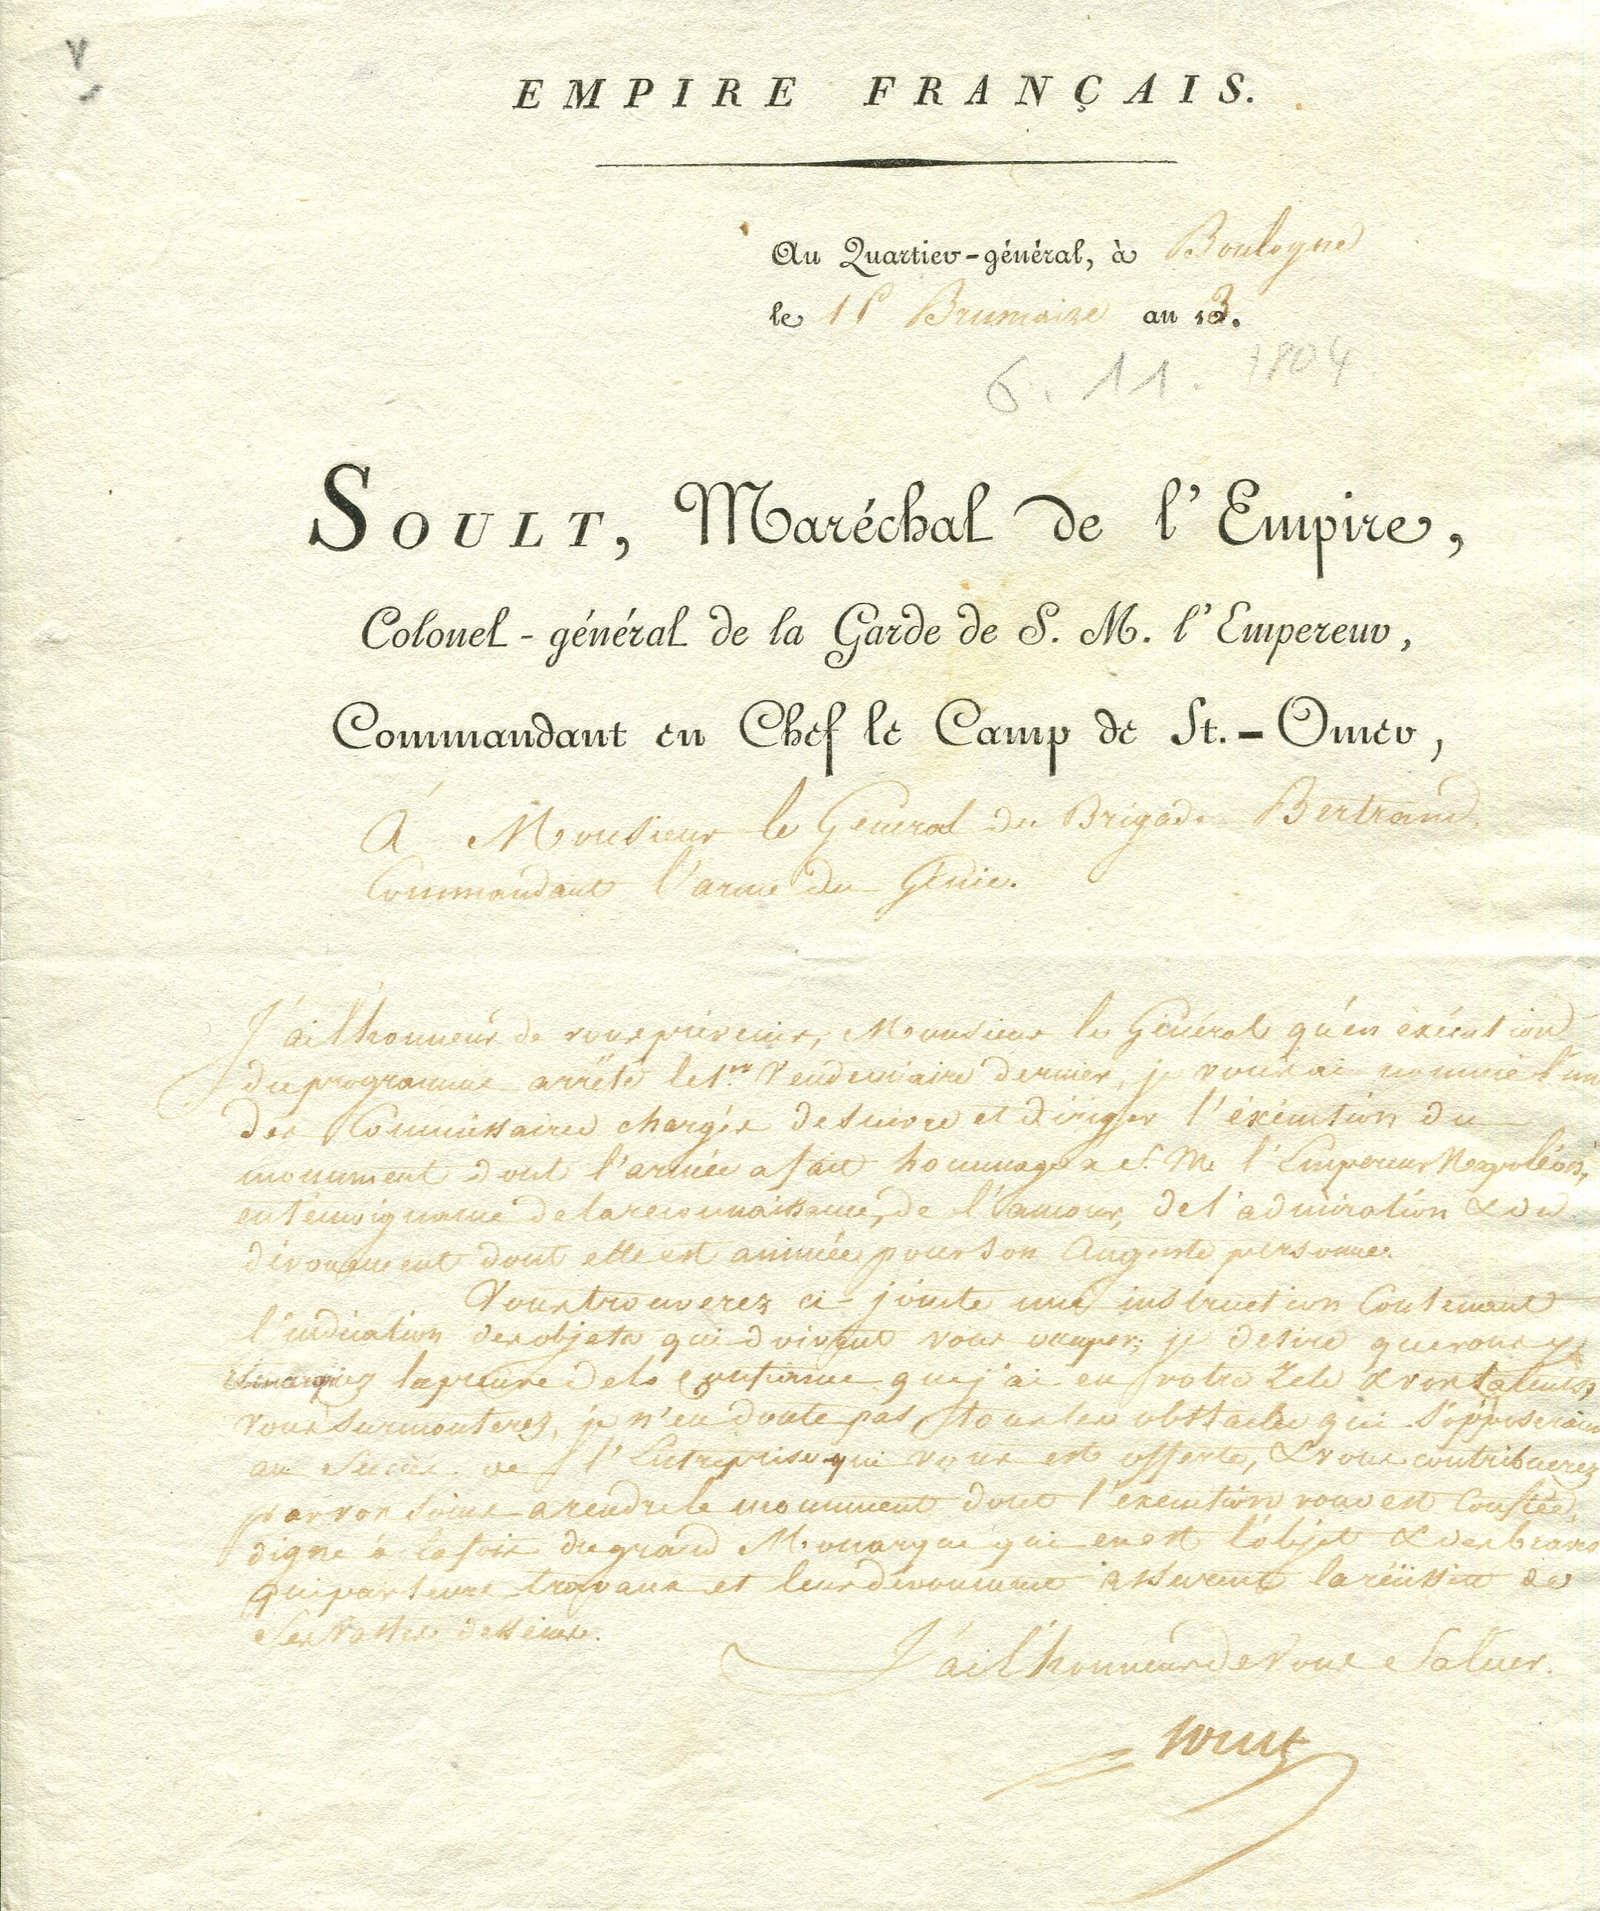 EMPIRE FRANÇAIS.
Au Quartier-général, à Boulogne
le 15 Brumaire an 13.
6. 11. 1804
SOULT, Maréchal de l'Empire,
Colonel-général de la Garde de S. M. l'Empereur,
Commandant en Chef le Camp de St.-Omer,
À Monsieur le Général de Brigade Bertrand,
Commandant l'arme du Génie.
J'ai l'honneur de vous prévenir, Monsieur le Général qu'en exécution
du programme arrêté le 1er Vendemiaire dernier, je vous ai nommé l'un
des Commissaires chargés de suivre et diriger l'éxécution du
monument dont l'armée a fait hommage a S. M. l'Empereur Napoléon,
en témoignage de la reconnaissance, de l'amour, de l'admiration & du
dévouement dont elle est animée pour son Auguste personne.
Vous trouverez ci-jointe une instruction Contenant
l'indication des objets qui doivent vous occuper; je desire que vous y
la preuve de la confiance que j'ai en votre Zele & vos talents,
Vous surmonterez, je n'en doute pas, tous les obstacles qui s'opposeraient
au Succès de l'Entreprise qui vous est offerte, & vous contribuerez
par vos soins a rendre le monument dont l'exécution vous est Confiée,
digne à la fois du grand Monarque qui en est l'objet & des braves
qui par leurs travaux et leur dévouement assurent la réussite de
Ses Vastes desseins.
J'ai l'honneur de Vous Saluer.
Soult